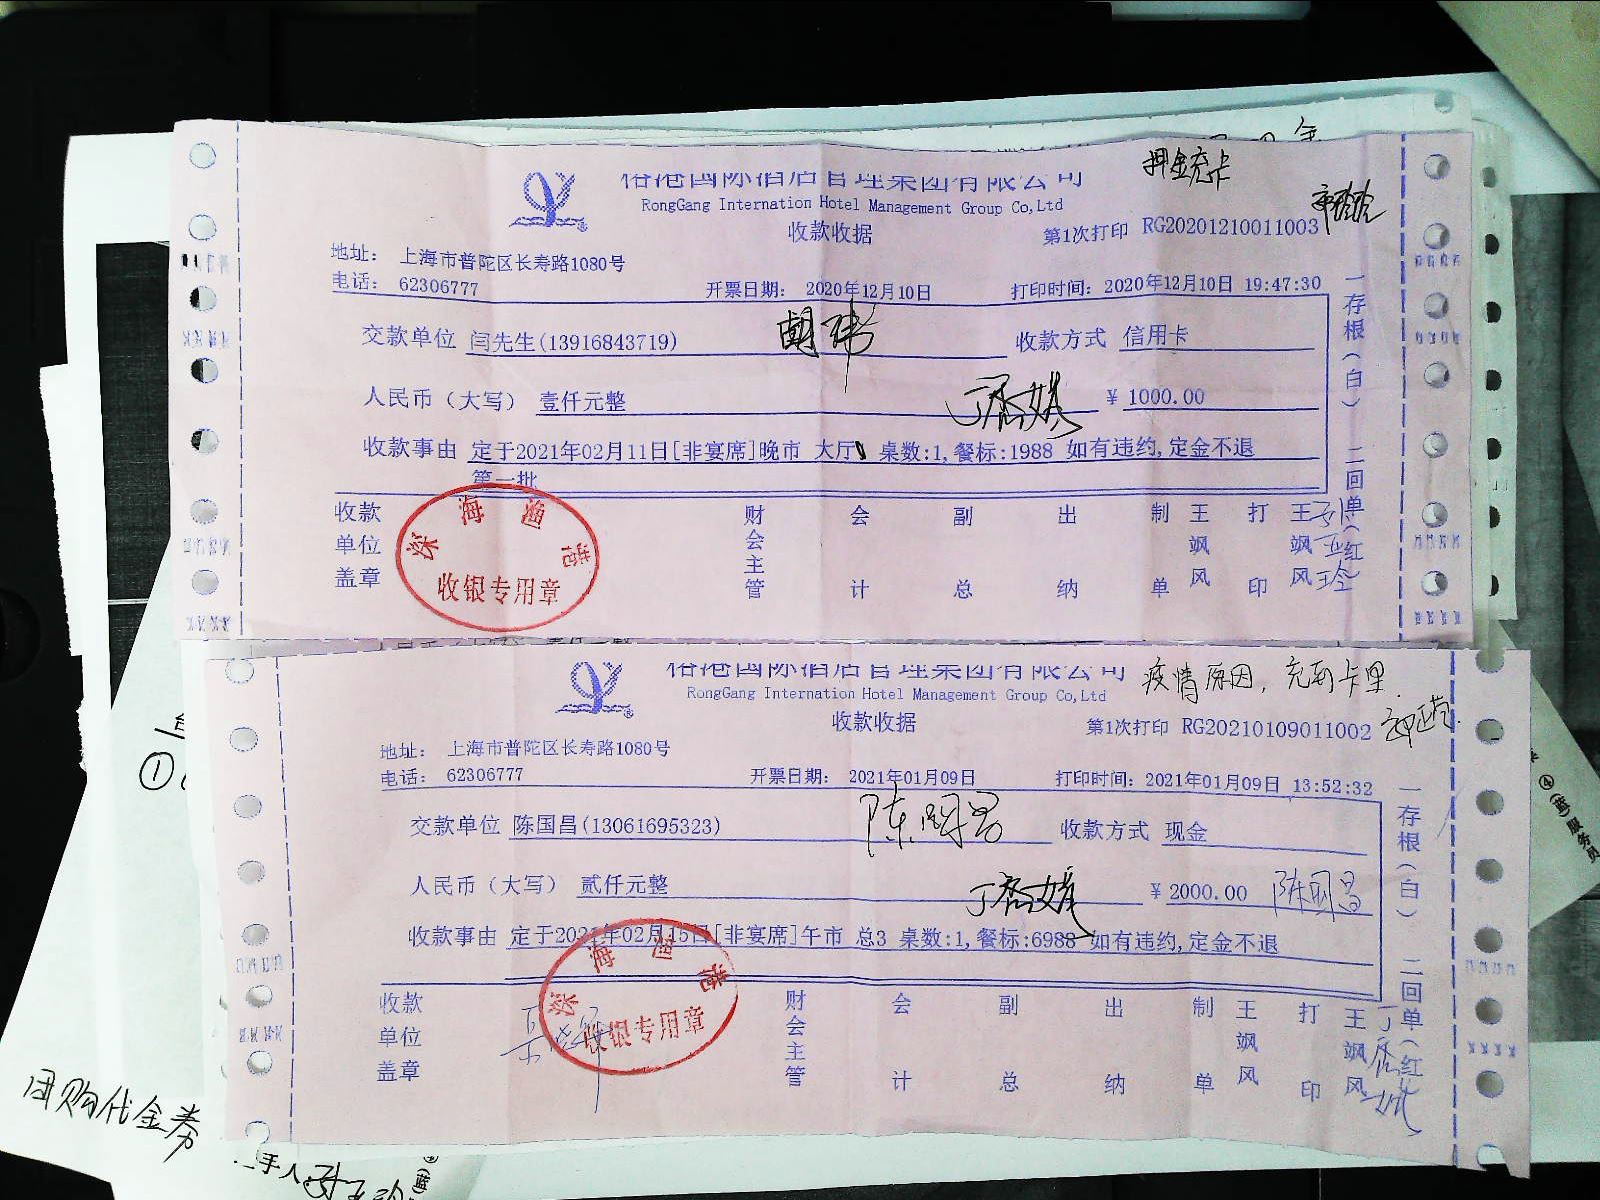 押金充卡
榕港国际酒店管理集团有限公司
RongGang Internation Hotel Management Group Co,Ltd
收款收据
第1次打印 RG20201210011003
地址： 上海市普陀区长寿路1080号
电话： 62306777 开票日期： 2020年12月10日 打印时间：2020年12月10日 19:47:30
交款单位 闫先生(13916843719) 收款方式 信用卡
人民币（大写） 壹仟元整 ¥ 1000.00
收款事由 定于2021年02月11日[非宴席]晚市 大厅 桌数:1,餐标:1988 如有违约,定金不退
第一批
一存根（白） 二回单（红）
收款单位盖章 财会主管 会计 副总 出纳 制单 王飒风 打印 王飒风
深海渔港
收银专用章
榕港国际酒店管理集团有限公司
RongGang Internation Hotel Management Group Co,Ltd
疫情原因，充到卡里.
收款收据
第1次打印 RG20210109011002
地址： 上海市普陀区长寿路1080号
电话： 62306777 开票日期： 2021年01月09日 打印时间：2021年01月09日 13:52:32
交款单位 陈国昌(13061695323) 陈国昌 收款方式 现金
人民币（大写） 贰仟元整 ¥ 2000.00 陈国昌
收款事由 定于2021年02月15日[非宴席]午市 总3 桌数:1,餐标:6988 如有违约,定金不退
一存根（白） 二回单（红）
收款单位盖章 财会主管 会计 副总 出纳 制单 王飒风 打印 王飒风
深海渔港
收银专用章
①
④(蓝)服务员
团购代金券
手人